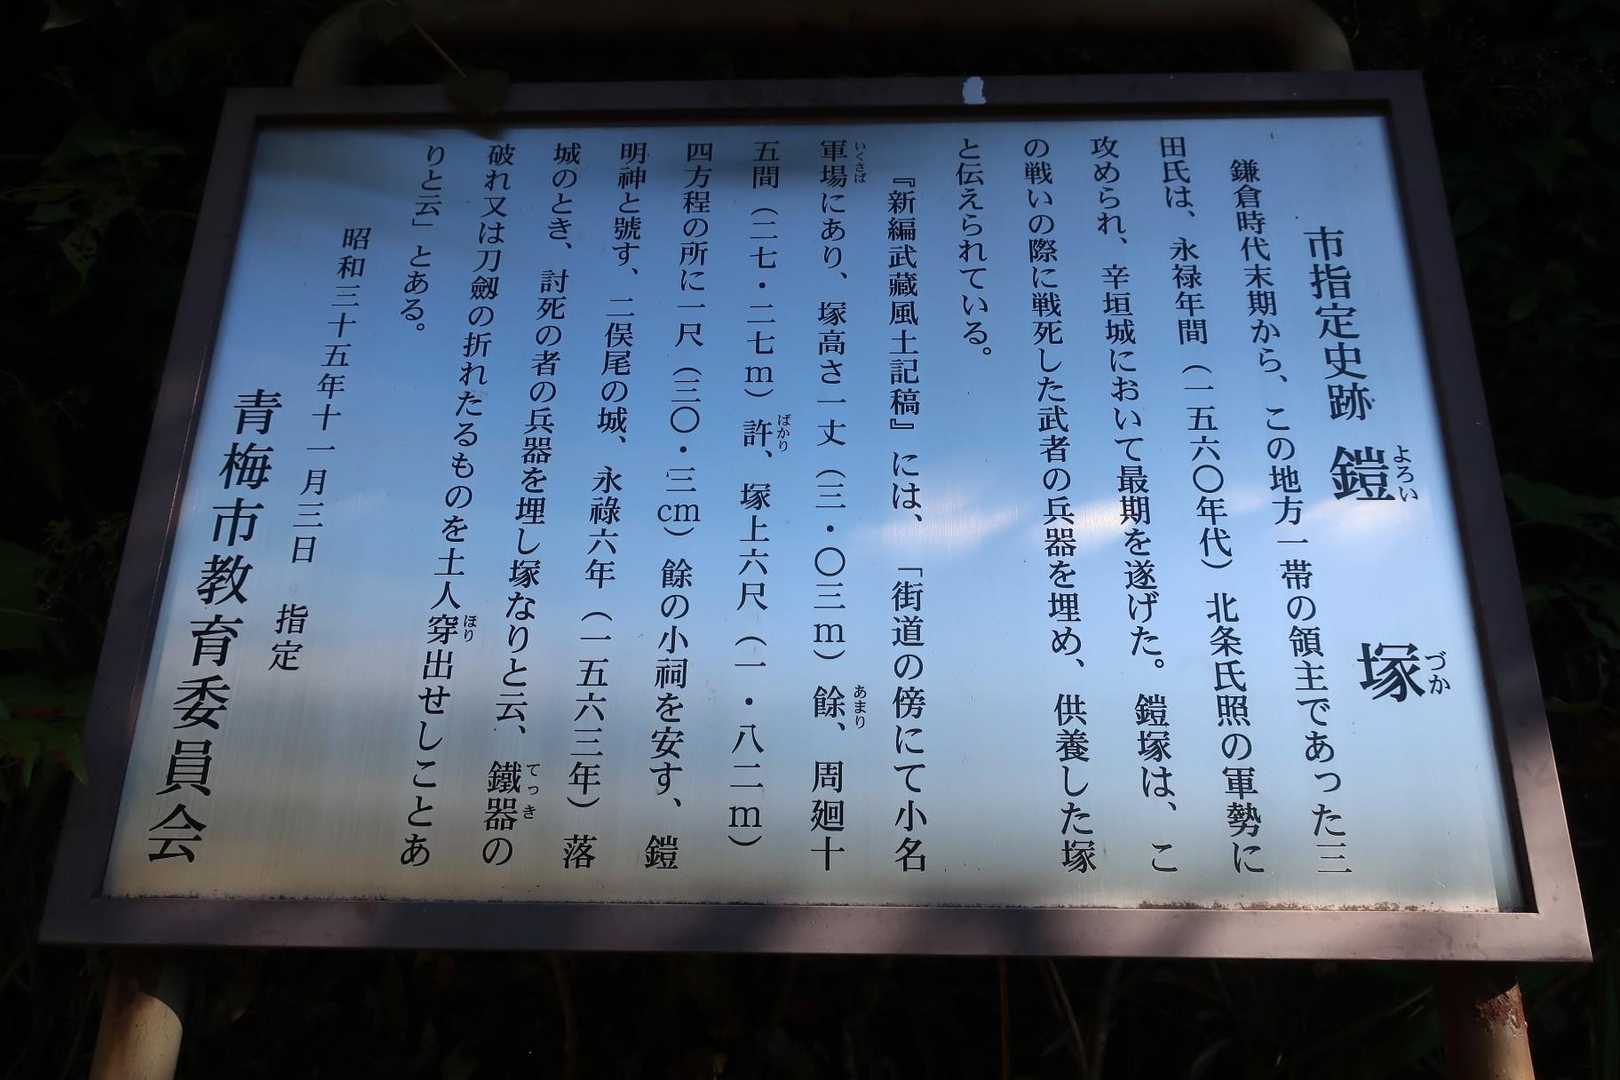 市指定史跡 鎧塚
よろい づか
鎌倉時代末期から、この地方一帯の領主であった三
田氏は、永禄年間（一五六〇年代）北条氏照の軍勢に
攻められ、辛垣城において最期を遂げた。鎧塚は、こ
の戦いの際に戦死した武者の兵器を埋め、供養した塚
と伝えられている。
『新編武藏風土記稿』には、「街道の傍にて小名
軍場にあり、塚高さ一丈（三・〇三m）餘、周廻十
いくさば あまり
五間（二七・二七m）許、塚上六尺（一・八二m）
ばかり
四方程の所に一尺（三〇・三cm）餘の小祠を安す、鎧
明神と號す、二俣尾の城、永祿六年（一五六三年）落
城のとき、討死の者の兵器を埋し塚なりと云、鐵器の
てっき
破れ又は刀劔の折れたるものを土人穿出せしことあ
ほり
りと云」とある。
昭和三十五年十一月三日 指定
青梅市教育委員会